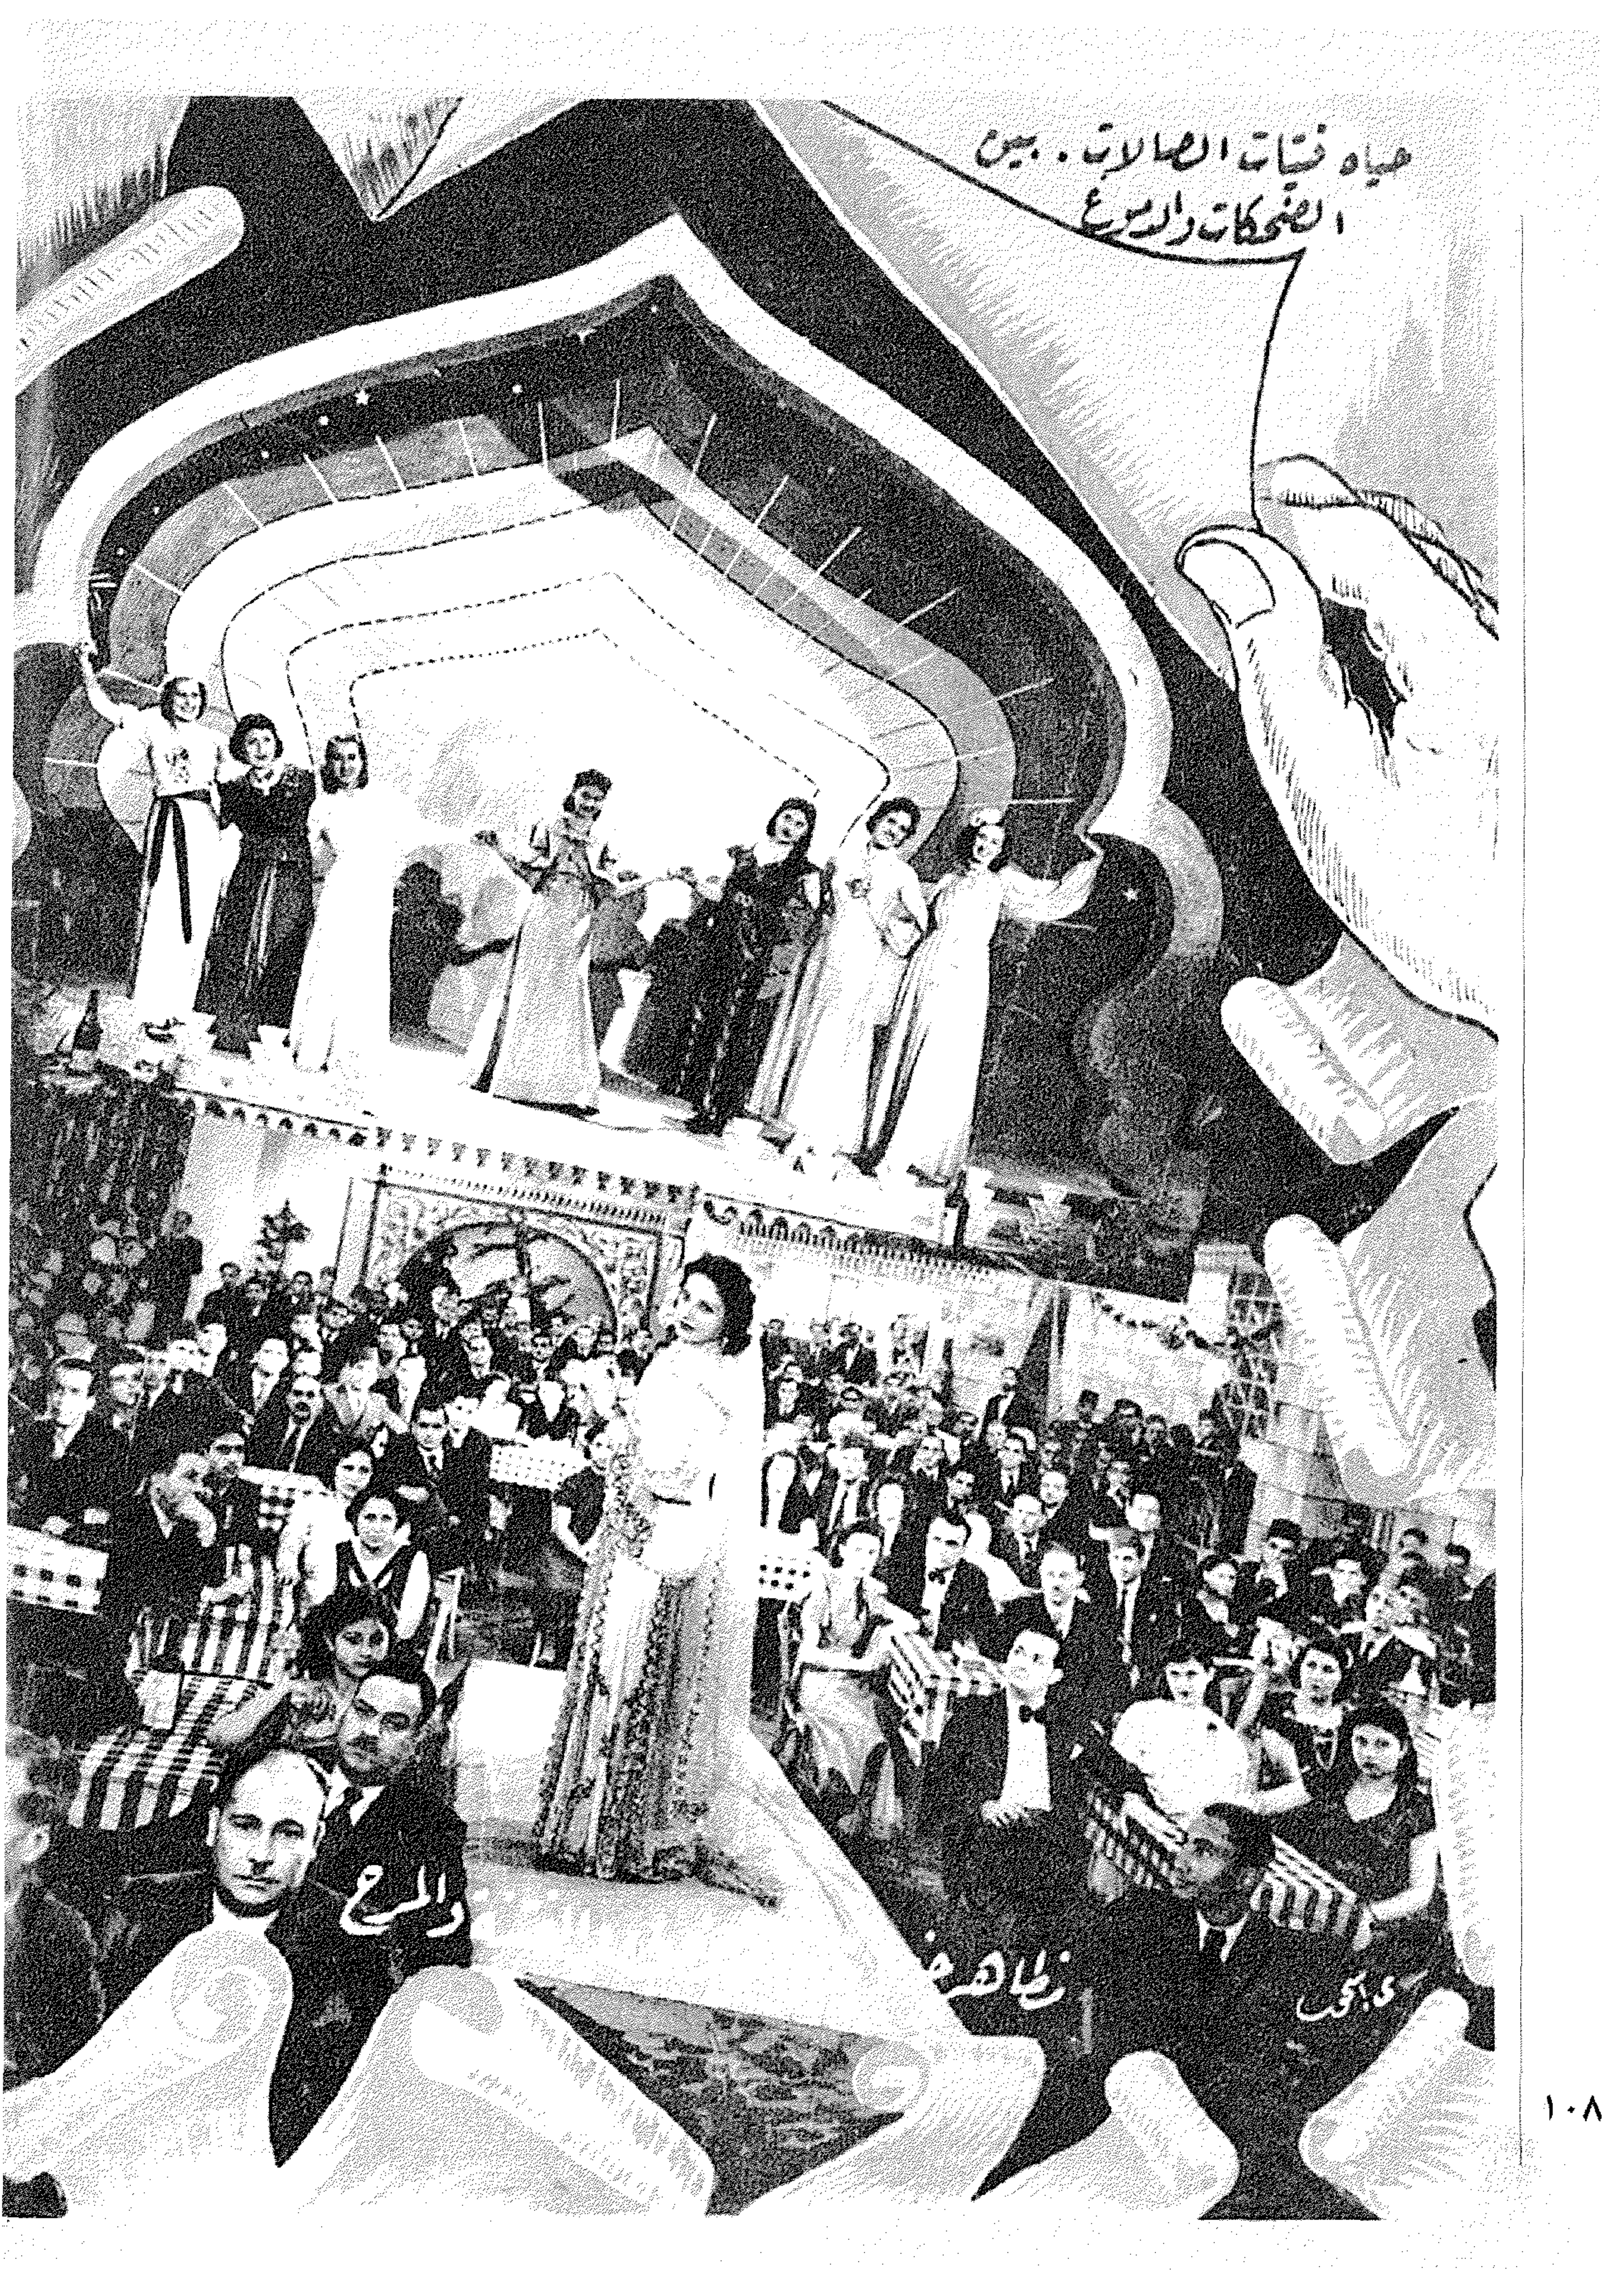 حياه فتيات الصالات . بين
الضحكات والدموع
والمرح
تظاهر
١٠٨